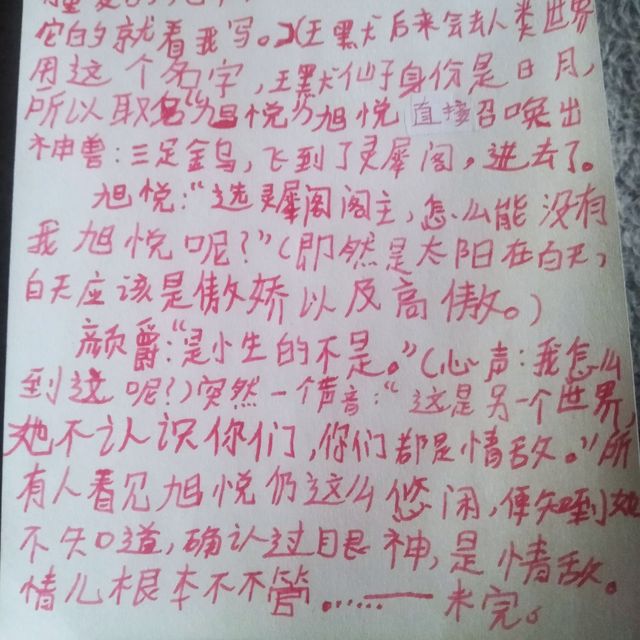 它的就看我写。)(王默后来会去人类世界
用这个名字,王默仙子身份是日月,
所以取名“旭悦”)旭悦直接召唤出
神兽:三足金乌,飞到了灵犀阁。进去了。
旭悦:“选灵犀阁阁主,怎么能没有
我旭悦呢?”(即然是太阳在白天,
白天应该是傲娇以及高傲。)
颜爵:“是小生的不是。”(心声:我怎么
到这呢?)突然一个声音:“这是另一个世界,
她不认识你们,你们都是情敌。”所
有人看见旭悦仍这么悠闲,便知到她
不知道,确认过眼神,是情敌。
情儿根本不不管……——未完。